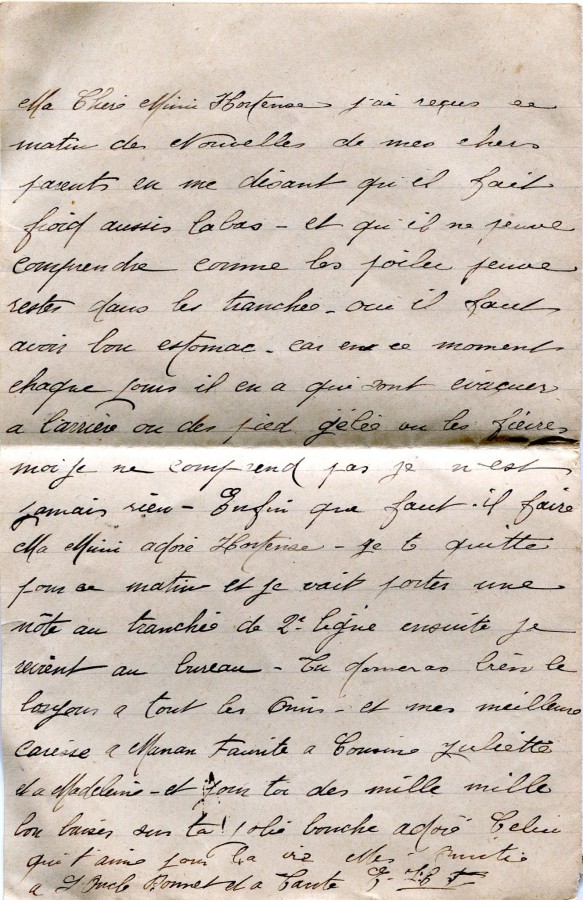 Ma Cheri Mimi Hortense j'ai reçus ce
matin des Nouvelles de mes chers
parents en me disant qu'il fait
froid aussis labas - et qu'il ne peuve
comprendre comme les poilu peuve
rester dans les tranchée - oui il faut
avoir bon estomac - car en ce moment
chaque jours il en a qui sont évacuer
a l'arrière ou des pied gélée ou les fièvres
moi je ne comprend pas je n'est
jamais rien - Enfin que faut-il faire
Ma Mimi adoré Hortense - Je te quitte
pour ce matin et je vait porter une
nôte au tranchée de 2e ligne ensuite je
revient au bureau - Tu donneras bien le
bonjour a tout les Amis - et mes meilleure
caresse a Maman Faurite a Cousine Juliette
et a Madeleine - et pour toi des mille mille
bon baiser sur ta jolie bouche adoré Celui
qui t'aime pour la vie Mes Amitié
a L'Oncle Bonnet et a Tante